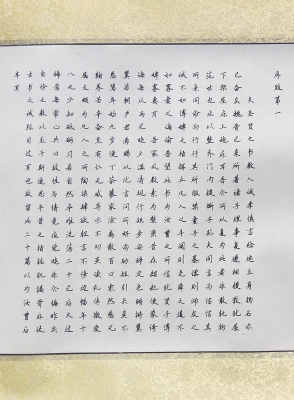 序致第一
夫圣贤之书教人诚孝慎言检迹立身扬名亦
已备矣魏晋已来所著诸子理重事复递相模效犹屋
下架屋床上施床耳吾今所以复为此者非敢轨物
范世也业以整齐门内提撕子孙夫同言而信信其
所亲同命而行行其所服禁童子之暴谑则师友之
诫不如傅婢之指挥止凡人之斗阋则尧舜之道不
如寡妻之诲谕吾望此书为汝曹之所信犹贤于傅
婢寡妻耳 吾家风教素为整密昔在龆龀便蒙诱
诲每从两兄晓夕温凊规行矩步安辞定色锵锵翼
翼若朝严君焉赐以优言问所好尚励短引长莫不
恳笃年始九岁便丁荼蓼家涂离散百口索然慈兄
鞠养苦辛备至有仁无威导示不切虽读礼传微爱
属文颇为凡人之所陶染肆欲轻言不修边幅年十
八九少知砥砺习若自然卒难洗荡二十已后大过
稀焉每常心共口敌性与情竞夜觉晓非今悔昨失
自怜无教以至于斯追思平昔之指铭肌镂骨非徒
古书之诫经目过耳也故留此二十篇以为汝曹后
车耳